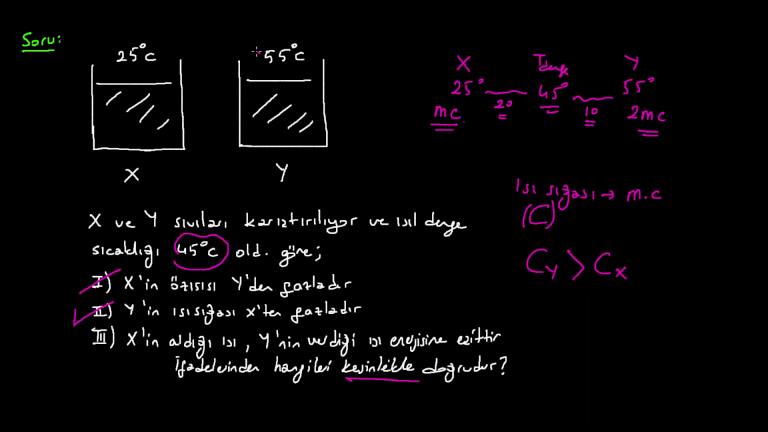 Soru:
25°C
55°C
X
Y
X ve Y sıvıları karıştırılıyor ve ısıl denge
sıcaklığı 45°C old. göre;
I) X'in özısısı Y'den fazladır
II) Y'in ısı sığası X'ten fazladır
III) X'in aldığı ısı, Y'nin verdiği ısı enerjisine eşittir
İfadelerinden hangileri kesinlikle doğrudur?
X Tdenge Y
25° 45° 55°
20 10
mc 2mc
Isı sığası → m.c
(C)
CY > CX